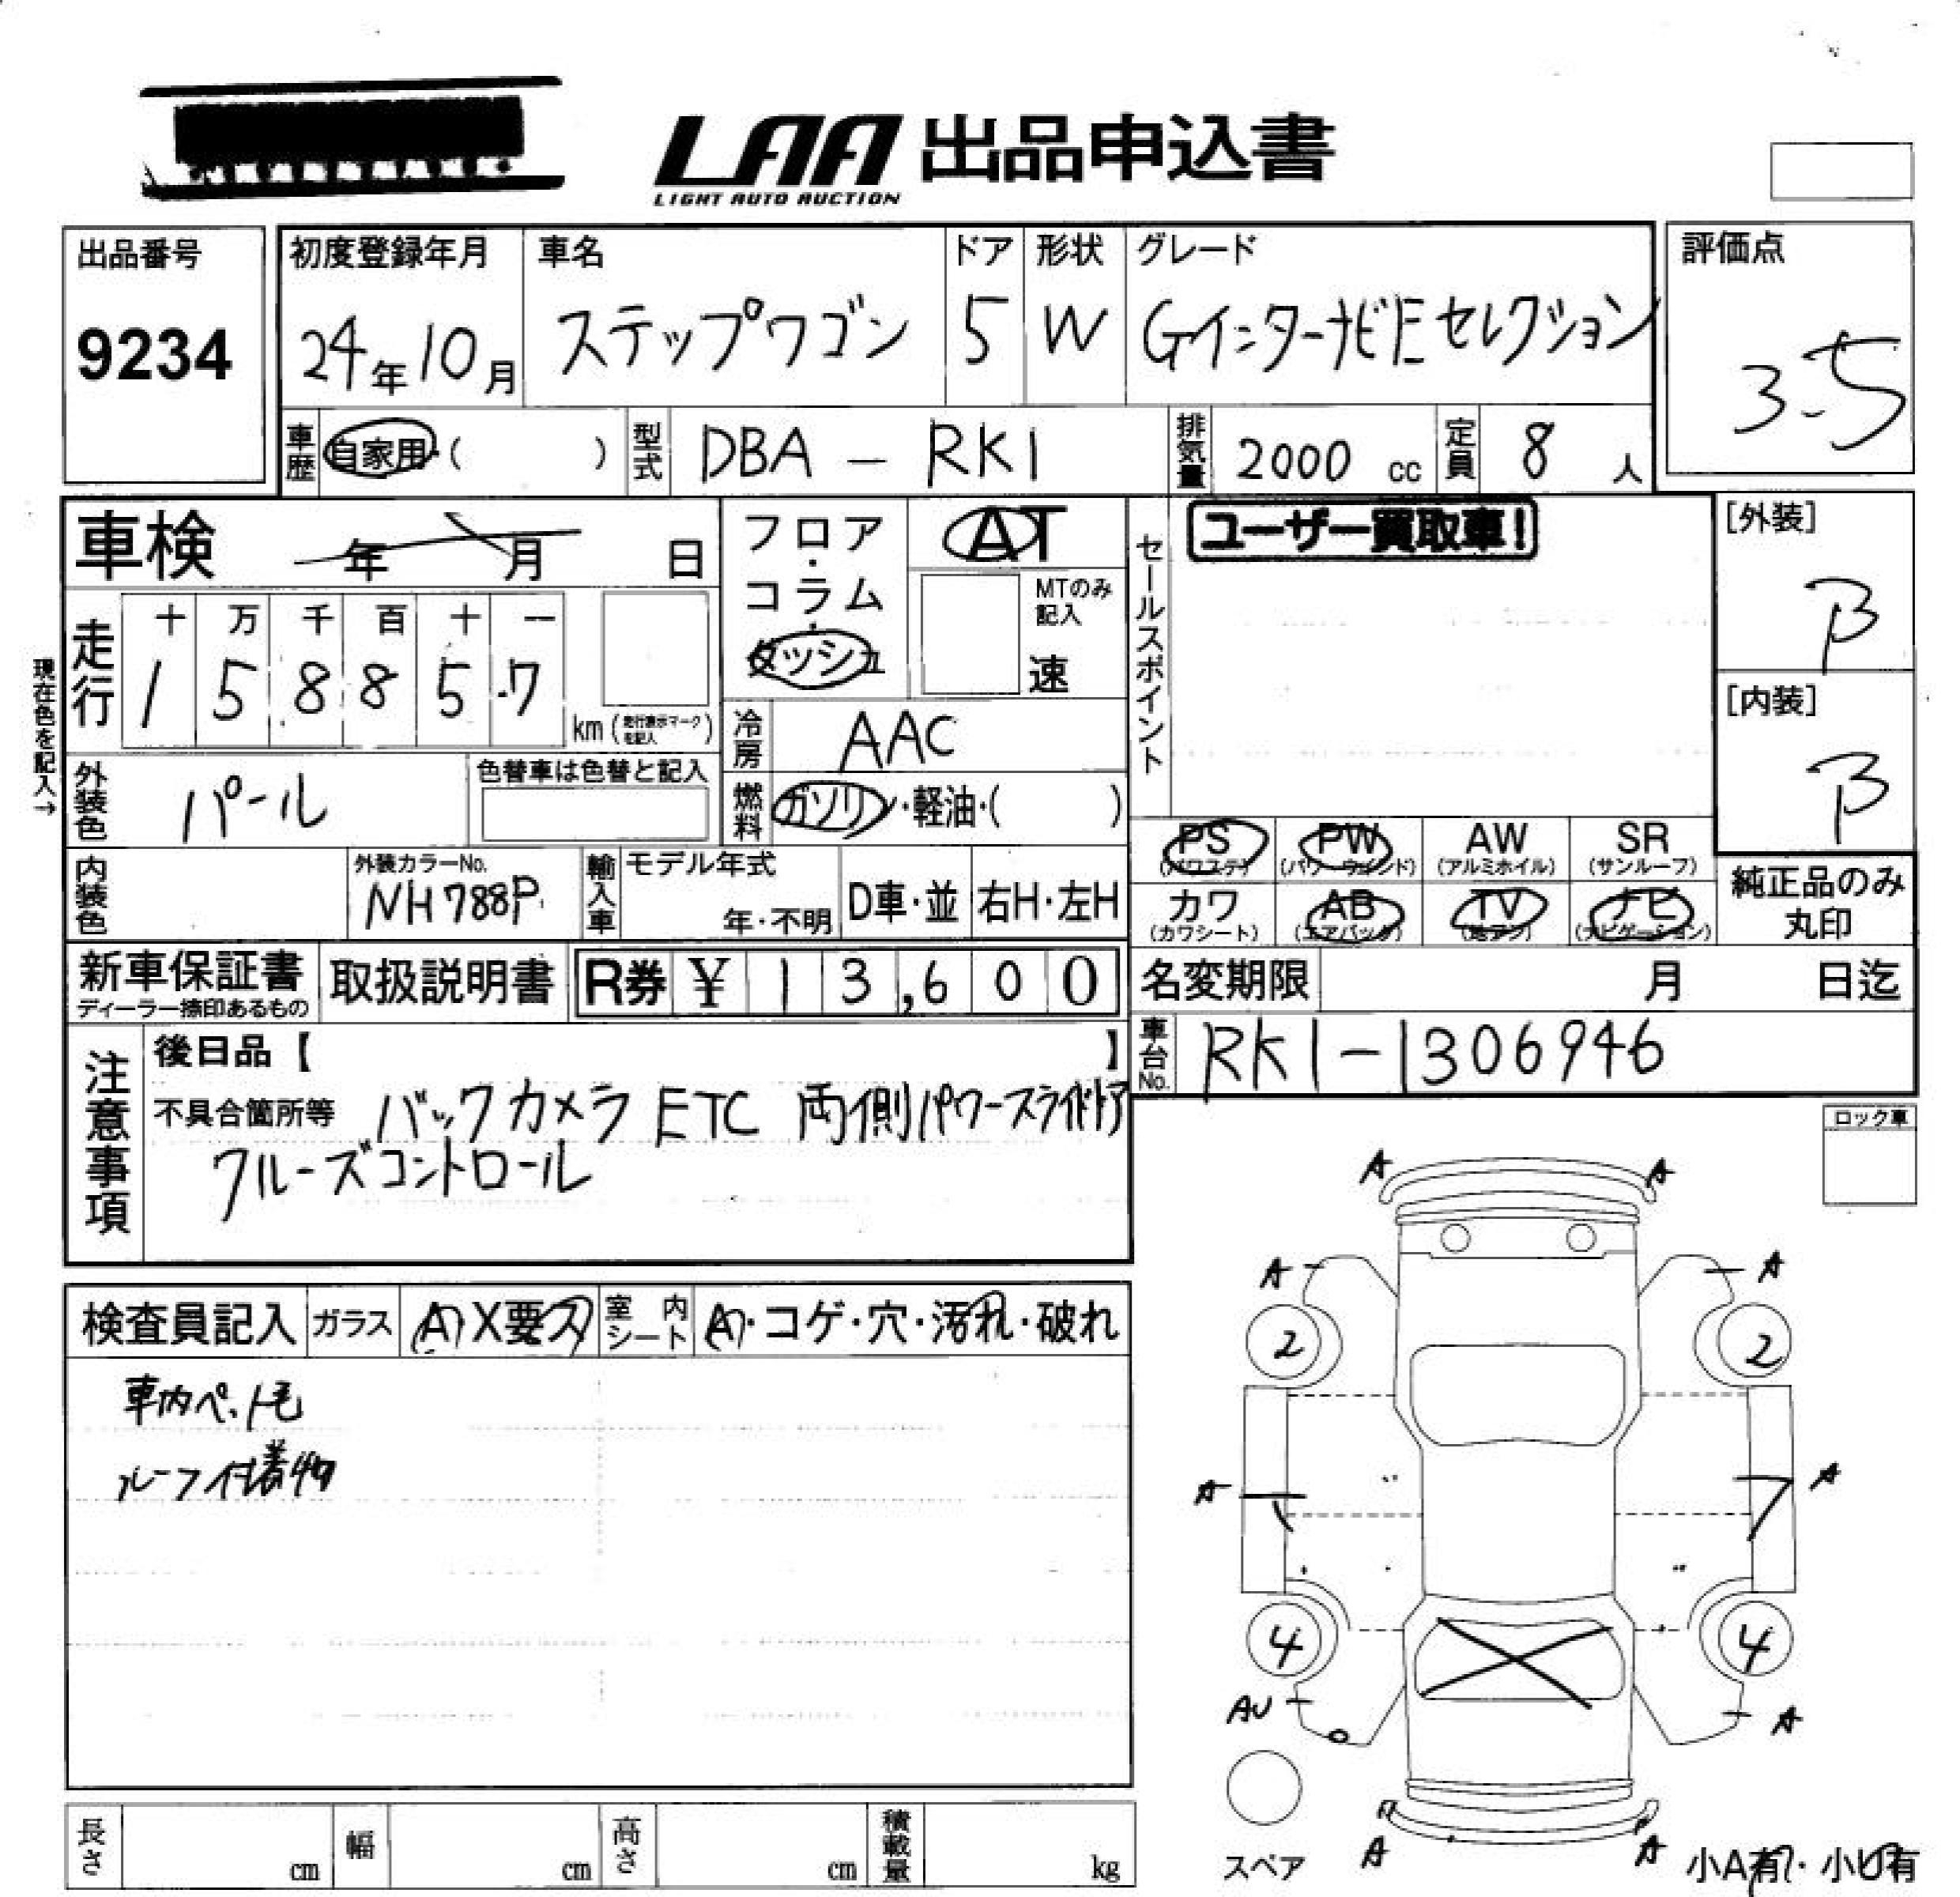 LAA 出品申込書
LIGHT AUTO AUCTION
出品番号
9234
初度登録年月
24年10月
車名
ステップワゴン
ドア
5
形状
W
グレード
GインターナビEセレクション
評価点
3.5
車歴 自家用・( )
型式 DBA-RK1
排気量 2000 cc
定員 8 人
車検 年 月 日
フロア・コラム・ダッシュ
AT
MTのみ記入
速
セールスポイント
ユーザー買取車!
[外装]
B
[内装]
B
現在色を記入→
走行
十 万 千 百 十 一
1 5 8 8 5 7
km (走行表示マークを記入)
冷房 AAC
外装色 パール
色替車は色替と記入
燃料 ガソリン・軽油・( )
PS (パワステ)
PW (パワーウィンド)
AW (アルミホイル)
SR (サンルーフ)
カワ (カワシート)
AB (エアバッグ)
TV (地デジ)
ナビ (ナビゲーション)
純正品のみ丸印
内装色
外装カラーNo.
NH788P
輸入車
モデル年式
年・不明
D車・並
右H・左H
新車保証書
ディーラー捺印あるもの
取扱説明書
R券 ¥ 13,600
名変期限 月 日迄
車台No. RK1-1306946
注意事項
後日品【 】
不具合箇所等 バックカメラ ETC 両側パワースライドドア
クルーズコントロール
ロック車
検査員記入
ガラス A・X要ス
室内シート A・コゲ・穴・汚れ・破れ
車内ペット毛
ルーフ付着物
A A
A A
2 2
A A
4 4
AU A
A A
スペア
小A有・小U有
長さ cm
幅 cm
高さ cm
積載量 kg